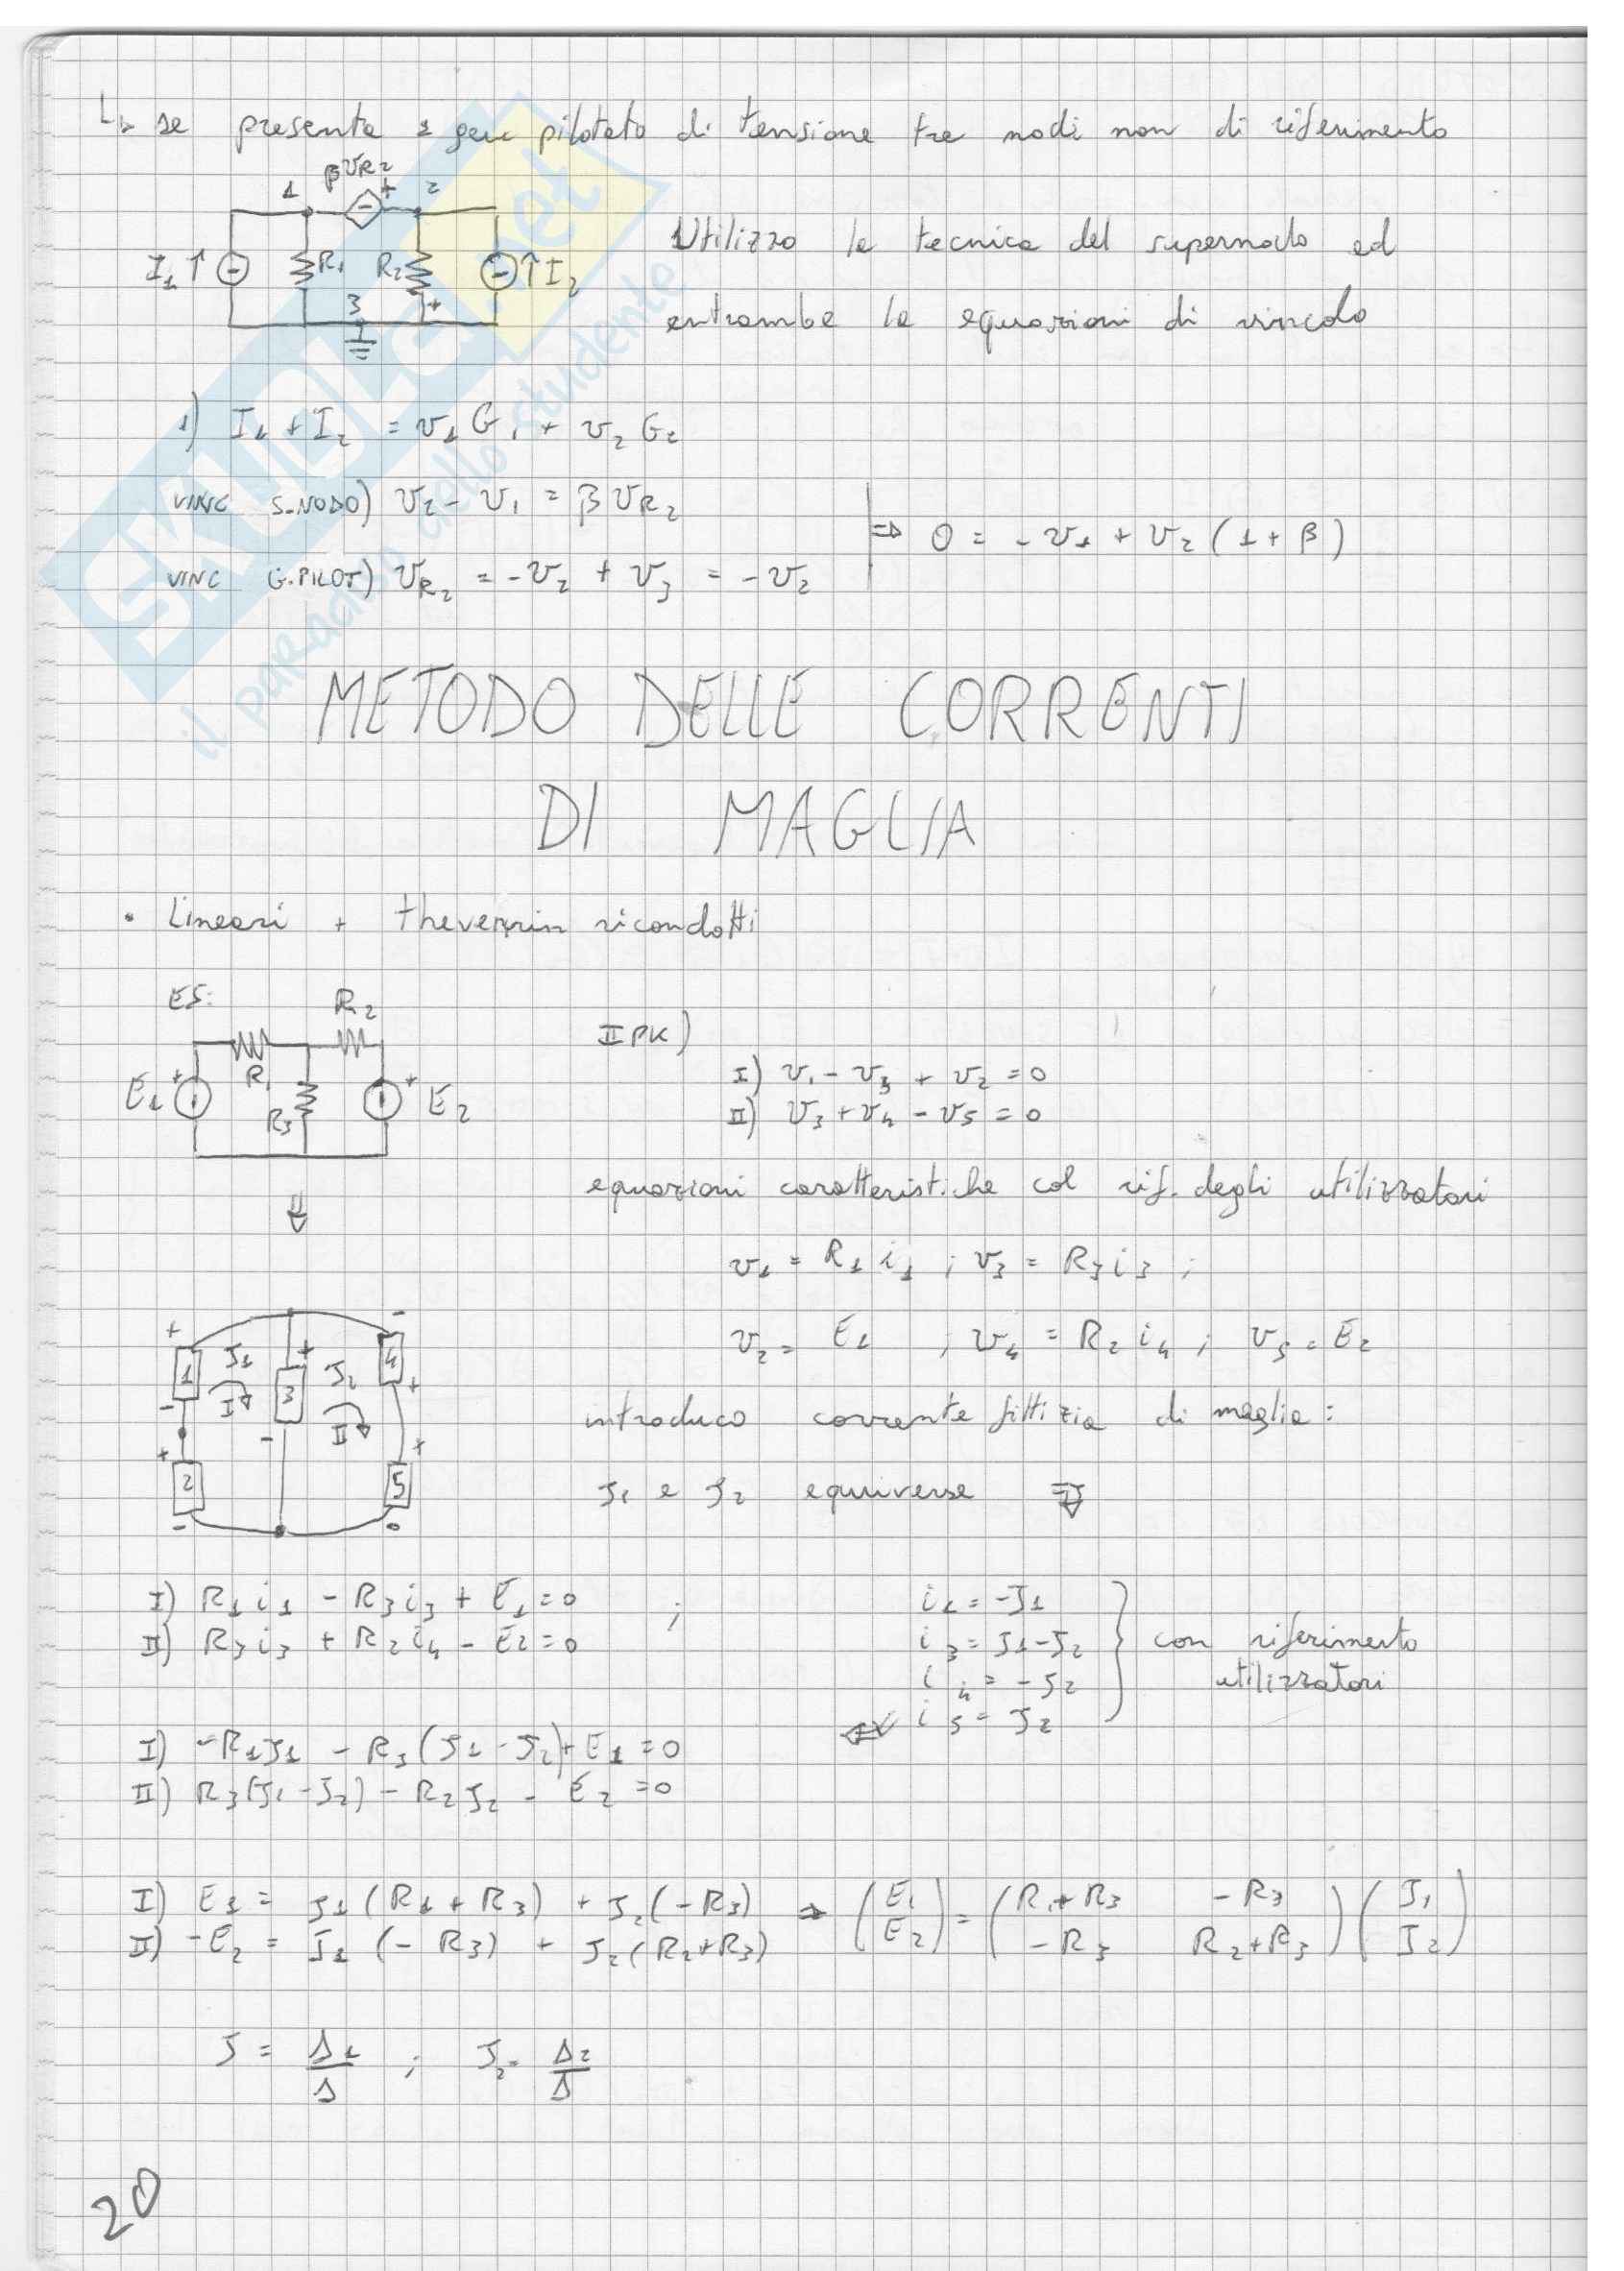 ↳ se presente 1 gen pilotato di tensione tra nodi non di riferimento
βVR2
1 - + 2
I1 ↑ R1 R2 ↑ I2
3 +
Utilizzo la tecnica del supernodo ed
entrambe le equazioni di vincolo
1) I1 + I2 = v1 G1 + v2 G2
VINC S.NODO) v2 - v1 = β vR2
⇒ 0 = -v1 + v2 (1 + β)
VINC G.PILOT) vR2 = -v2 + v3 = -v2
METODO DELLE CORRENTI
DI MAGLIA
• Lineari + thevenin ricondotti
ES:
R2
R1
E1 + R3 + E2
II PK)
I) v1 - v3 + v2 = 0
II) v3 + v4 - v5 = 0
⇓
equazioni caratteristiche col rif. degli utilizzatori
v1 = R1 i1 ; v3 = R3 i3 ;
v2 = E1 ; v4 = R2 i4 ; v5 = E2
+ 1 - J1 I + 3 - J2 II - 4 +
+ 2 - + 5
introduco corrente fittizia di maglia:
J1 e J2 equiverse ⇓
I) R1 i1 - R3 i3 + E1 = 0 ;
II) R3 i3 + R2 i4 - E2 = 0
i1 = -J1
i3 = J1 - J2
i4 = -J2
⇐ i5 = J2
con riferimento
utilizzatori
I) -R1 J1 - R3 (J1 - J2) + E1 = 0
II) R3 (J1 - J2) - R2 J2 - E2 = 0
I) E1 = J1 (R1 + R3) + J2 (-R3) → (E1 E2) = (R1+R3 -R3 -R3 R2+R3) (J1 J2)
II) -E2 = J1 (-R3) + J2 (R2+R3)
J = Δ1/Δ ; J2 = Δ2/Δ
20
SKUOLA.net
il paradiso dello studente